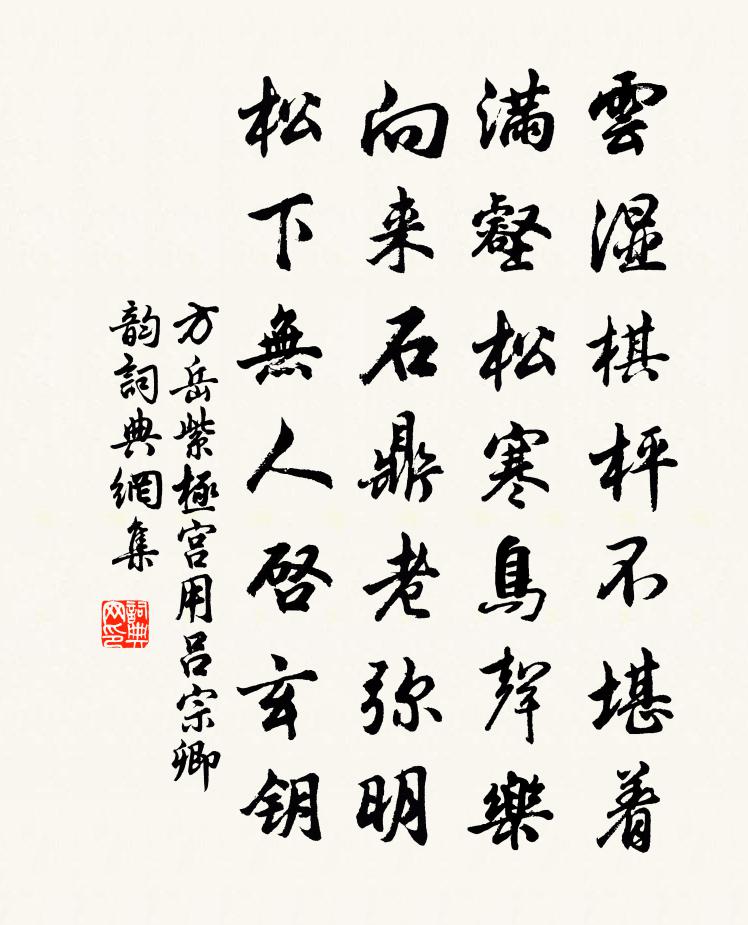 雲湿棋枰不堪着
满壑松寒鳥聲樂
向来石鼎老弥明
松下無人启玄钥
方岳紫極宫用吕宗卿
韵詞典網集
詞典网印